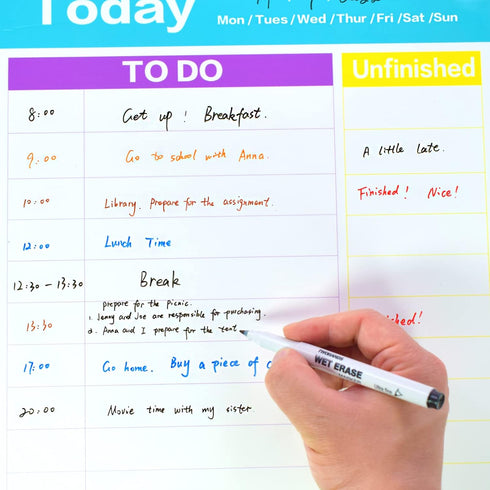 Today
Mon / Tues / Wed / Thur / Fri / Sat / Sun
TO DO
Unfinished
8:00 Get up! Breakfast.
A little late.
9:00 Go to school with Anna.
10:00 Library. Prepare for the assignment.
Finished! Nice!
12:00 Lunch Time
12:30 - 13:30 Break
prepare for the picnic.
13:30 1. Jenny and Joe are responsible for purchasing.
2. Anna and I prepare for the tent
17:00 Go home. Buy a piece of
20:00 Movie time with my sister.
WET ERASE